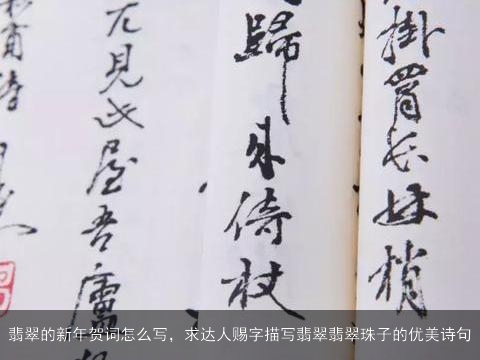 掛罥長林梢
歸来倚杖
兀見此屋吾廬
翡翠的新年贺词怎么写，求达人赐字描写翡翠翡翠珠子的优美诗句